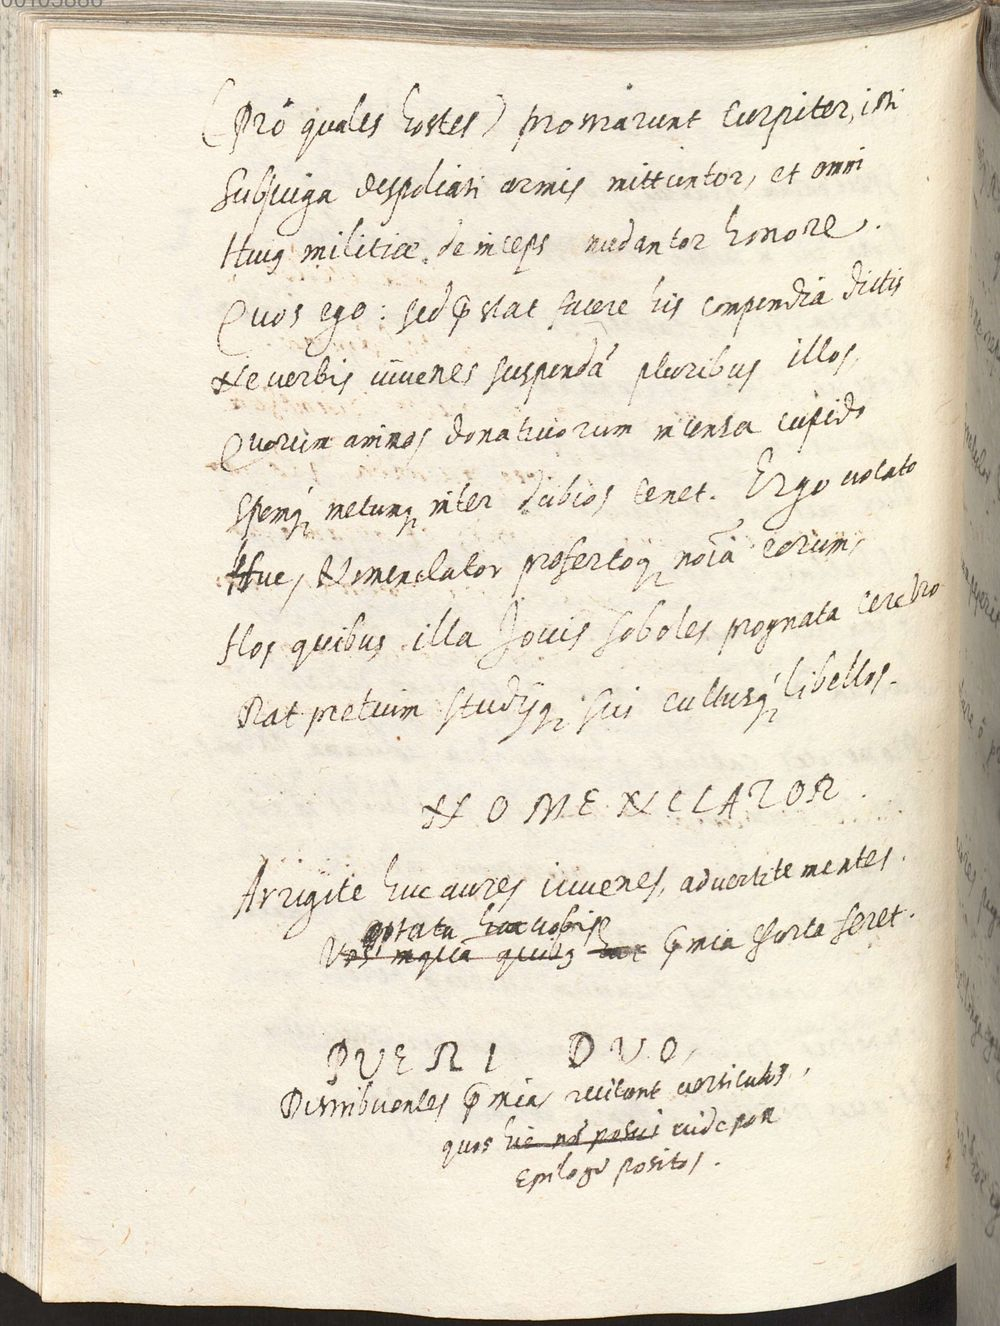 (Prô quales hostes) promarunt turpiter, isti
Subjuga despoliati armis mittuntor, et omni
Huius militiae deinceps nudantor honore.
Quos ego: sed p̃stat facere his compendia dictis
Ne verbis iuvenes suspendã pluribus illos.
Quorum animos donativorum intensa cupido
Spemq; metumq; inter dubios tenet. Ergo volato
Huc, Nomenclator profertoq; noĩa eorum,
Hos quibus illa Jovis soboles prognata cerebro
Dat pretium studijq; sui cultusq; libellos.
NOMENCLATOR.
Arrigite huc aures iuvenes, advertite mentes.
optata vobis
Vos inqua quibus hac p̃mia Sorte feret.
PUERI DUO,
Distribuentes p̃mia, recitant versiculos,
quos hic nõ posui vide post
Epilogũ positos.